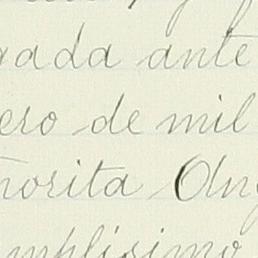 rada ante
ero de mil
ñorita An
mplisimo